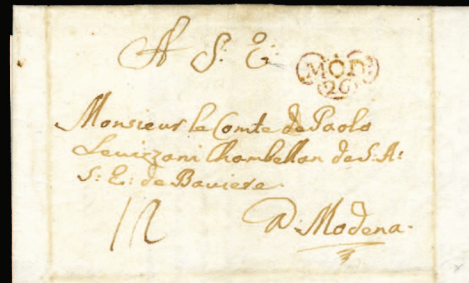 A S: E:
MOD:
26
Monsieur le Comte de Paolo
Levizzani Chambellan de S: A:
S: E: de Baviere.
12
A Modena.